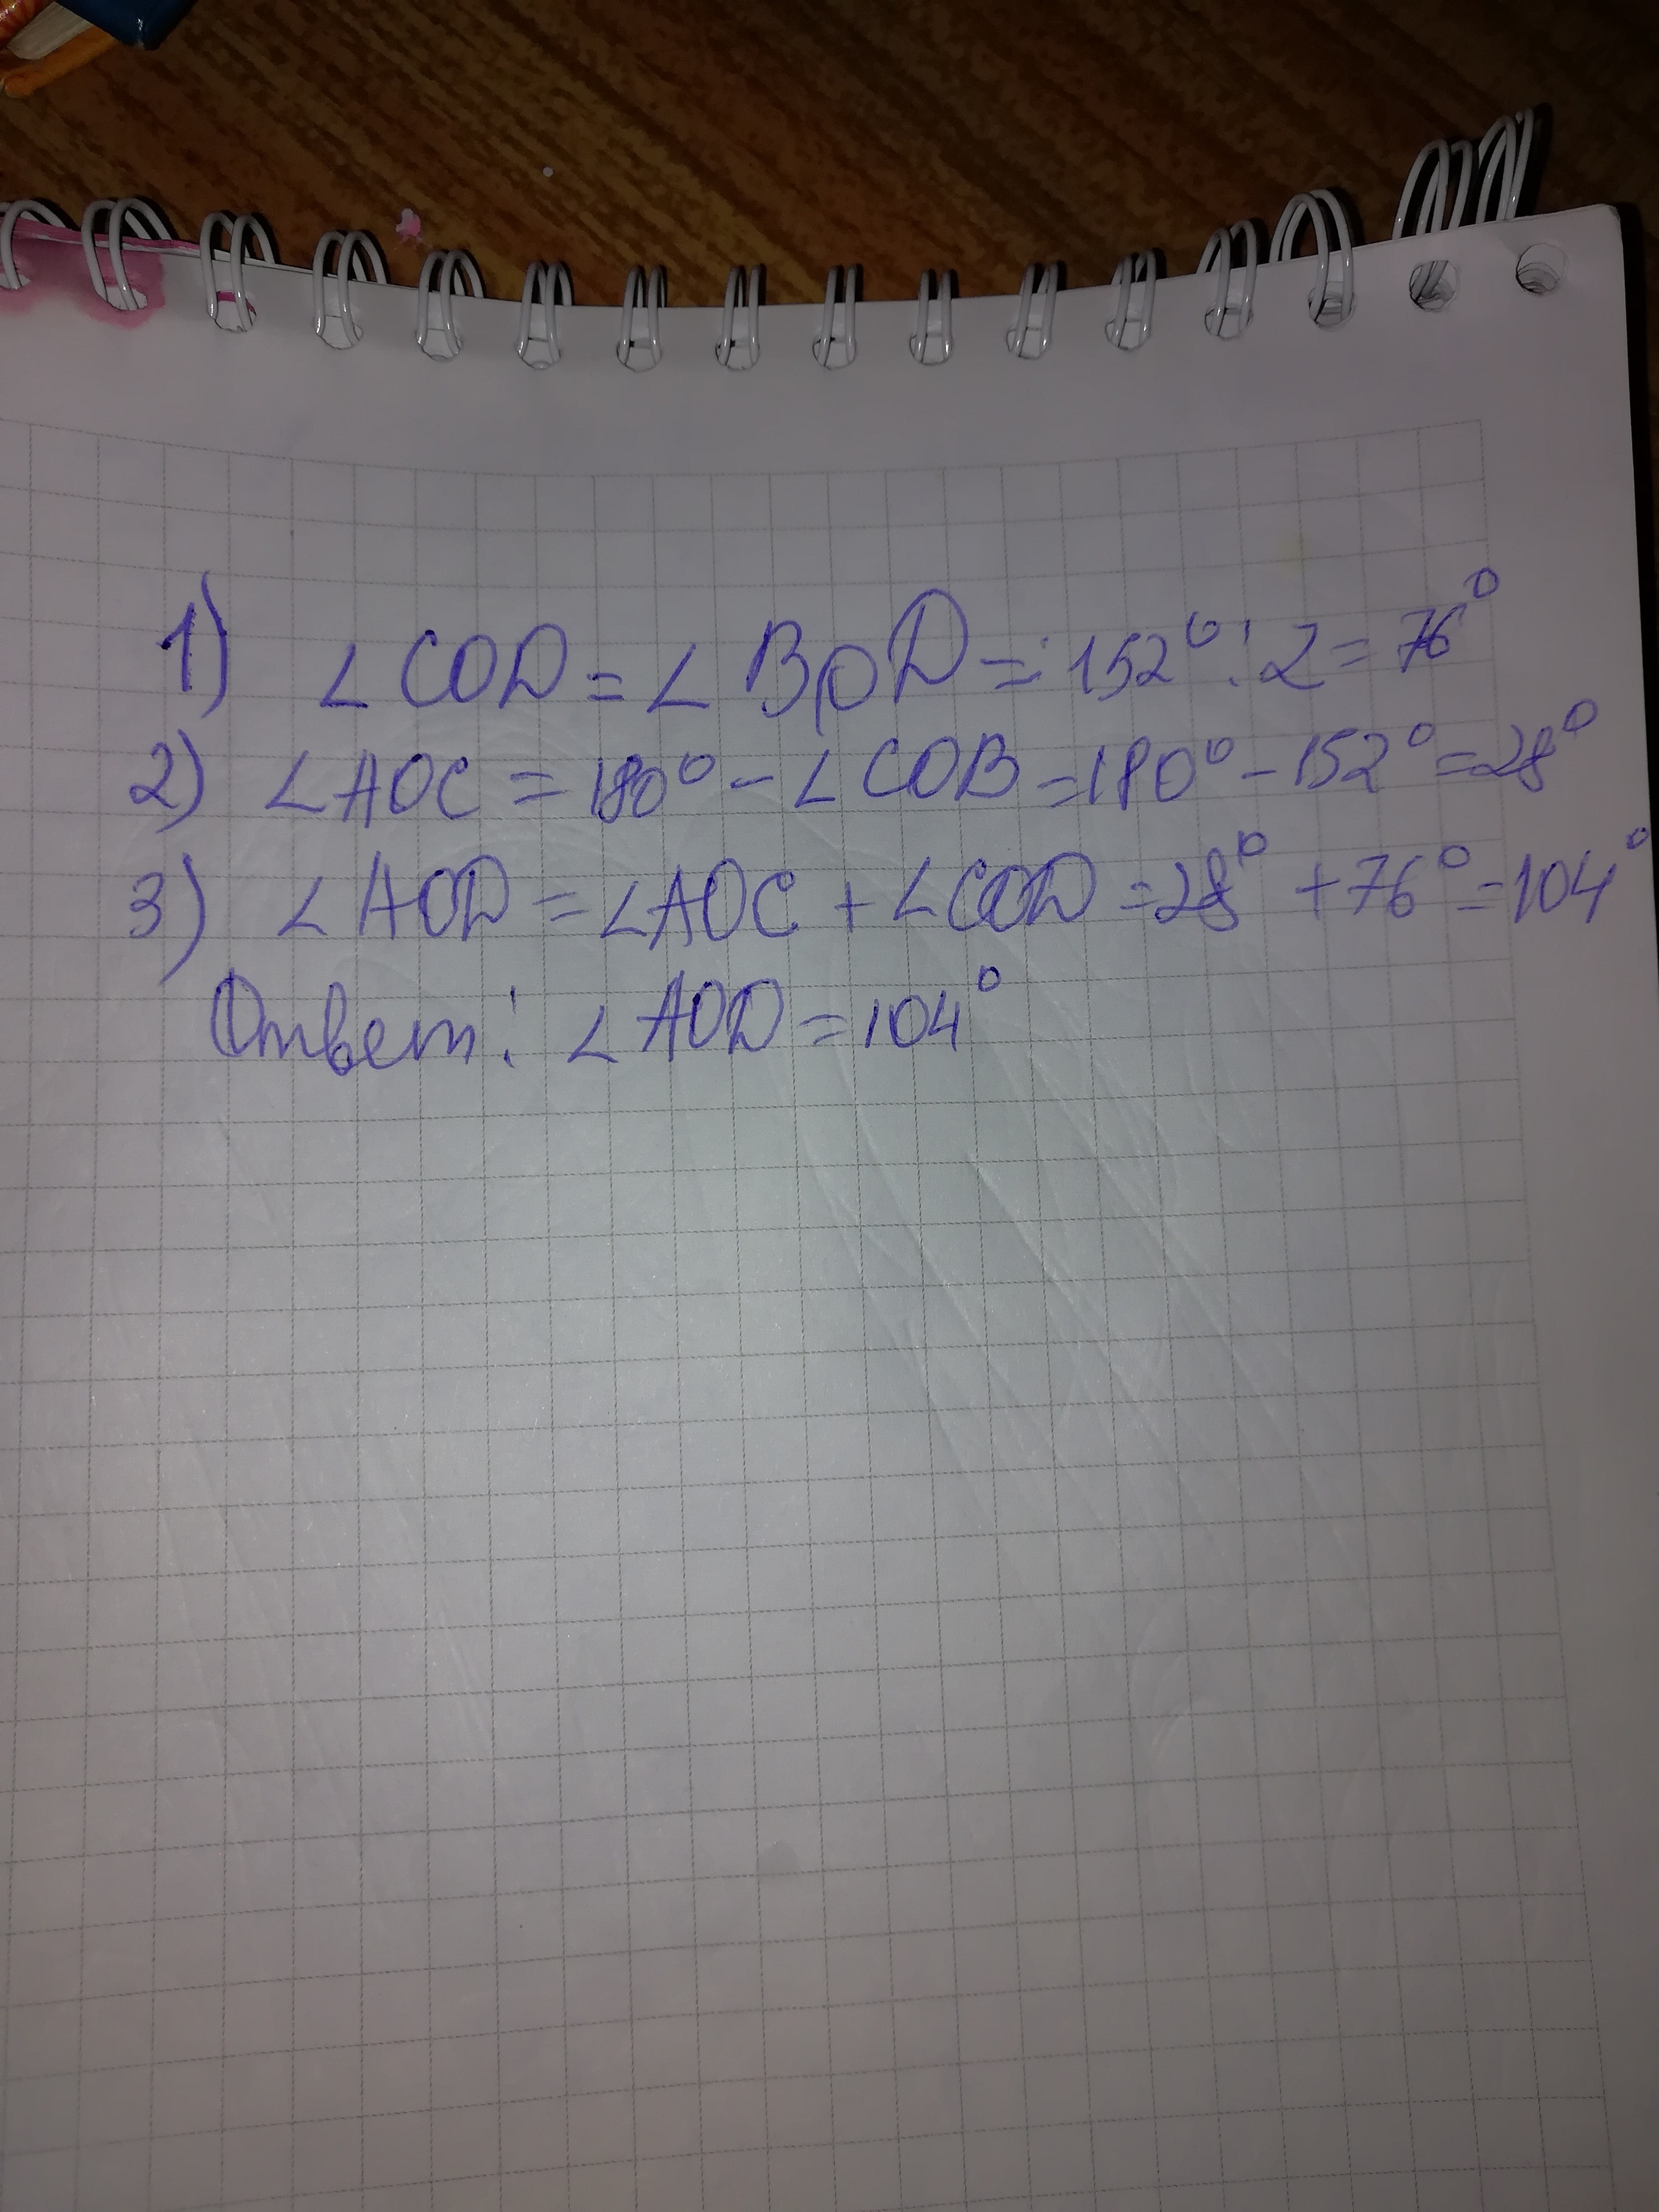 1) ∠COD = ∠BOD = 152° : 2 = 76°
2) ∠AOC = 180° - ∠COB = 180° - 152° = 28°
3) ∠AOD = ∠AOC + ∠COD = 28° + 76° = 104°
Ответ: ∠AOD = 104°